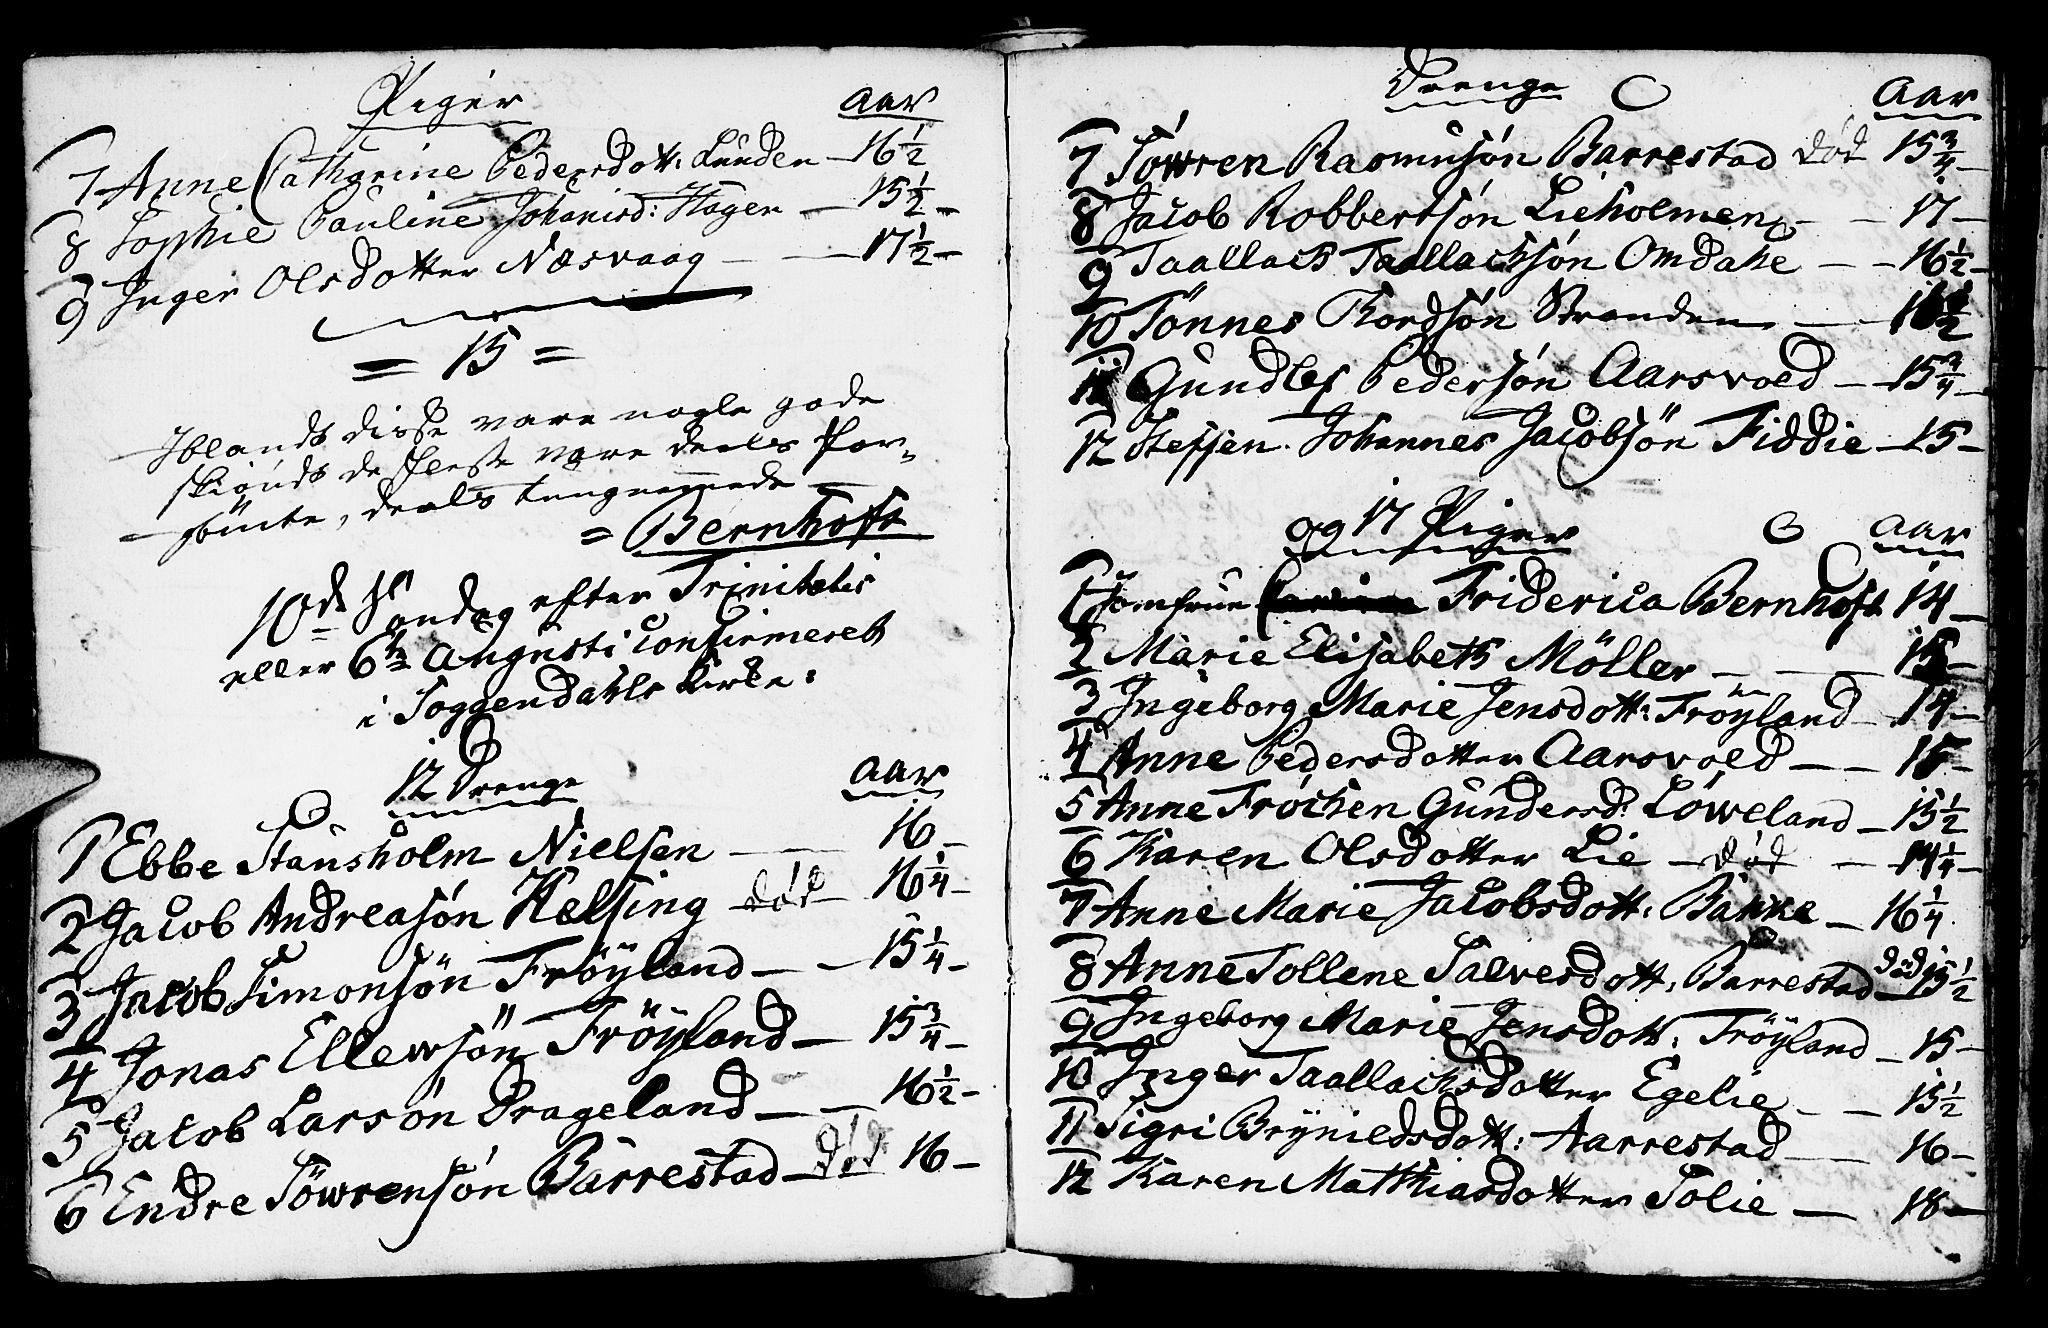 Piger Aar
7 Anne Catharine Pedersdott: Lunden — 16 1/2
8 Sophie Pauline Johanisd: Hagen — 15 1/2 —
9 Inger Olsdotter Næsvaag — — 17 1/2 —
= 15 =
Iblandt disse vare nogle gode
skiøndt de fleste vare deels for-
sømte, deels tungnemmede —
= Bernhoft
10de Søndag efter Trinitatis
eller 6te Augusti Confirmeret
i Soggendahls Kirke:
12 Drenge Aar
1 Ebbe Stausholm Nielsen — — 16 —
2 Jacob Andreasøn Helsing død 16 1/4 —
3 Jacob Simonsön Fröyland — — 15 1/4 —
4 Jonas Ellewsön Fröyland — 15 3/4 —
5 Jacob Larsøn Drageland — — 16 1/2 —
6 Endre Söwrensøn Barrestad — død 16 —
Drenge Aar
7 Söwren Rasmusøn Barrestad død 15 3/4 —
8 Jacob Robbertsøn Lieholmen — — 17 —
9 Taallach Taallachsøn Omdahl — — 16 1/2 —
10 Tönnes Tordsøn Stranden — 16 1/2
11 Gundlef Pedersøn Aarsvold — 15 3/4 —
12 Steffen Johannes Jacobsön Fiddie — 15 —
og 17 Piger Aar
1 Jomfrue Friderica Bernhoft 14 —
2 Marie Elisabeth Möller — — 15 —
3 Ingeborg Marie Jensdott: Fröyland — 14 —
4 Anne Pedersdotter Aarsvold — — 15 —
5 Anne Fröchen Gundersd: Löweland — 15 1/2
6 Karen Olsdotter Lie — død — 14 1/4 —
7 Anne Marie Jacobsdott: Bakke — 16 1/4
8 Anne Tollene Salvesdott: Barrestad død 15 1/2
9 Ingeborg Marie Jensdott: Fröyland — 15 —
10 Inger Taallachsdotter Egelie — — 15 1/2
11 Sigri Brynildsdott: Aarrestad — — 16 —
12 Karen Matthiasdotter Solie — 18 —